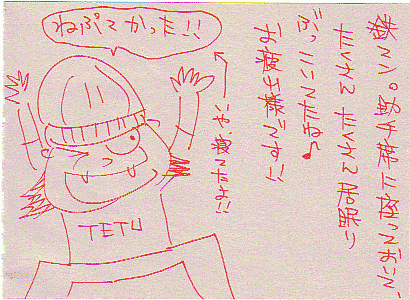 鉄マン。助手席に座っておいて、
たくさんたくさん居眠り
ぶっこいてたね♪
お疲出様です!!
ねぷてかった!!
いや、寝てたよ!!
TETU